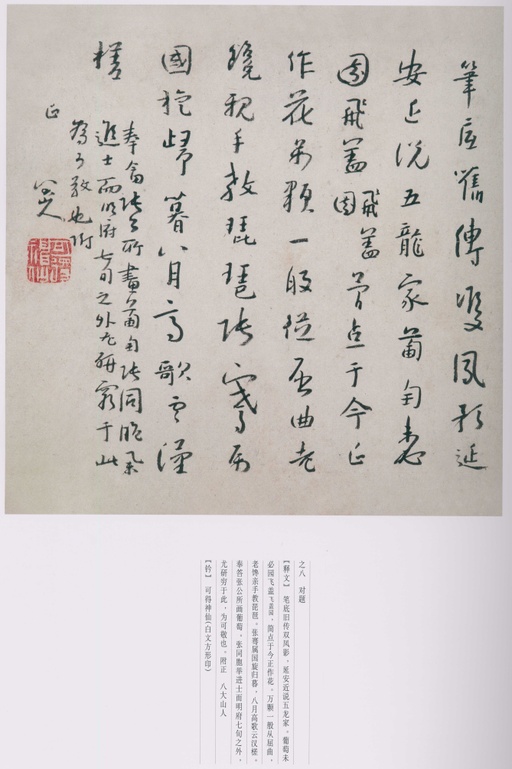 筆底舊傳雙鳳影延
安近說五龍家葡萄未必
園飛蓋飛蓋園簡点于今正
作花萬顆一般從屈曲老
饞親手教琵琶張騫屬
國旋歸暮八月高歌雲漢
槎
奉答張公所畫葡萄張同胞舉
進士而明府七旬之外尤研窮于此
為可敬也附
正
八大山人
可得神仙
之八 对题
【释文】 笔底旧传双凤影，延安近说五龙家。葡萄未
必园飞盖飞盖园，简点于今正作花。万颗一般从屈曲，
老馋亲手教琵琶。张骞属国旋归暮，八月高歌云汉槎。
奉答张公所画葡萄。张同胞举进士而明府七旬之外，
尤研穷于此，为可敬也。附正 八大山人
【钤】 可得神仙(白文方形印)